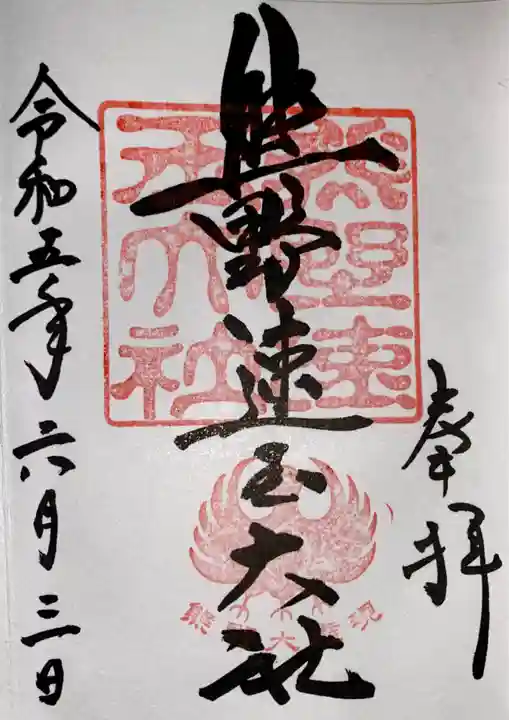 奉拝
熊野速玉大社
令和五年六月三日
熊野速玉大社
熊 大 現